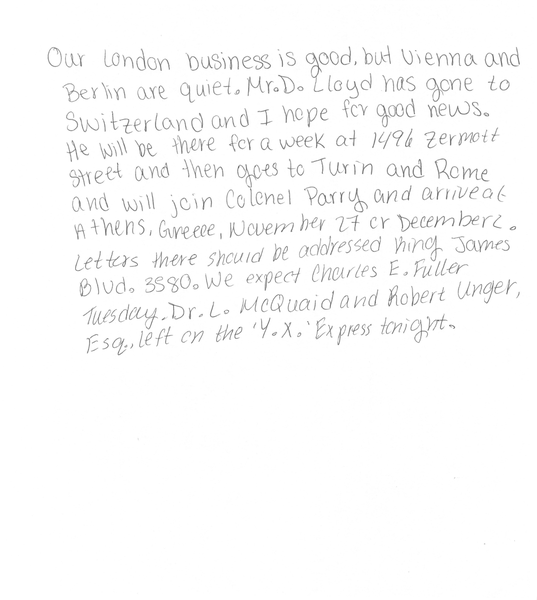 Our London business is good, but Vienna and
Berlin are quiet. Mr. D. Lloyd has gone to
Switzerland and I hope for good news.
He will be there for a week at 1496 Zermott
street and then goes to Turin and Rome
and will join Colonel Parry and arrive at
Athens, Greece, November 27 or December 2.
Letters there should be addressed King James
Blvd. 3580. We expect Charles E. Fuller
Tuesday. Dr. L. McQuaid and Robert Unger,
Esq., left on the 'Y.X.' Express tonight.